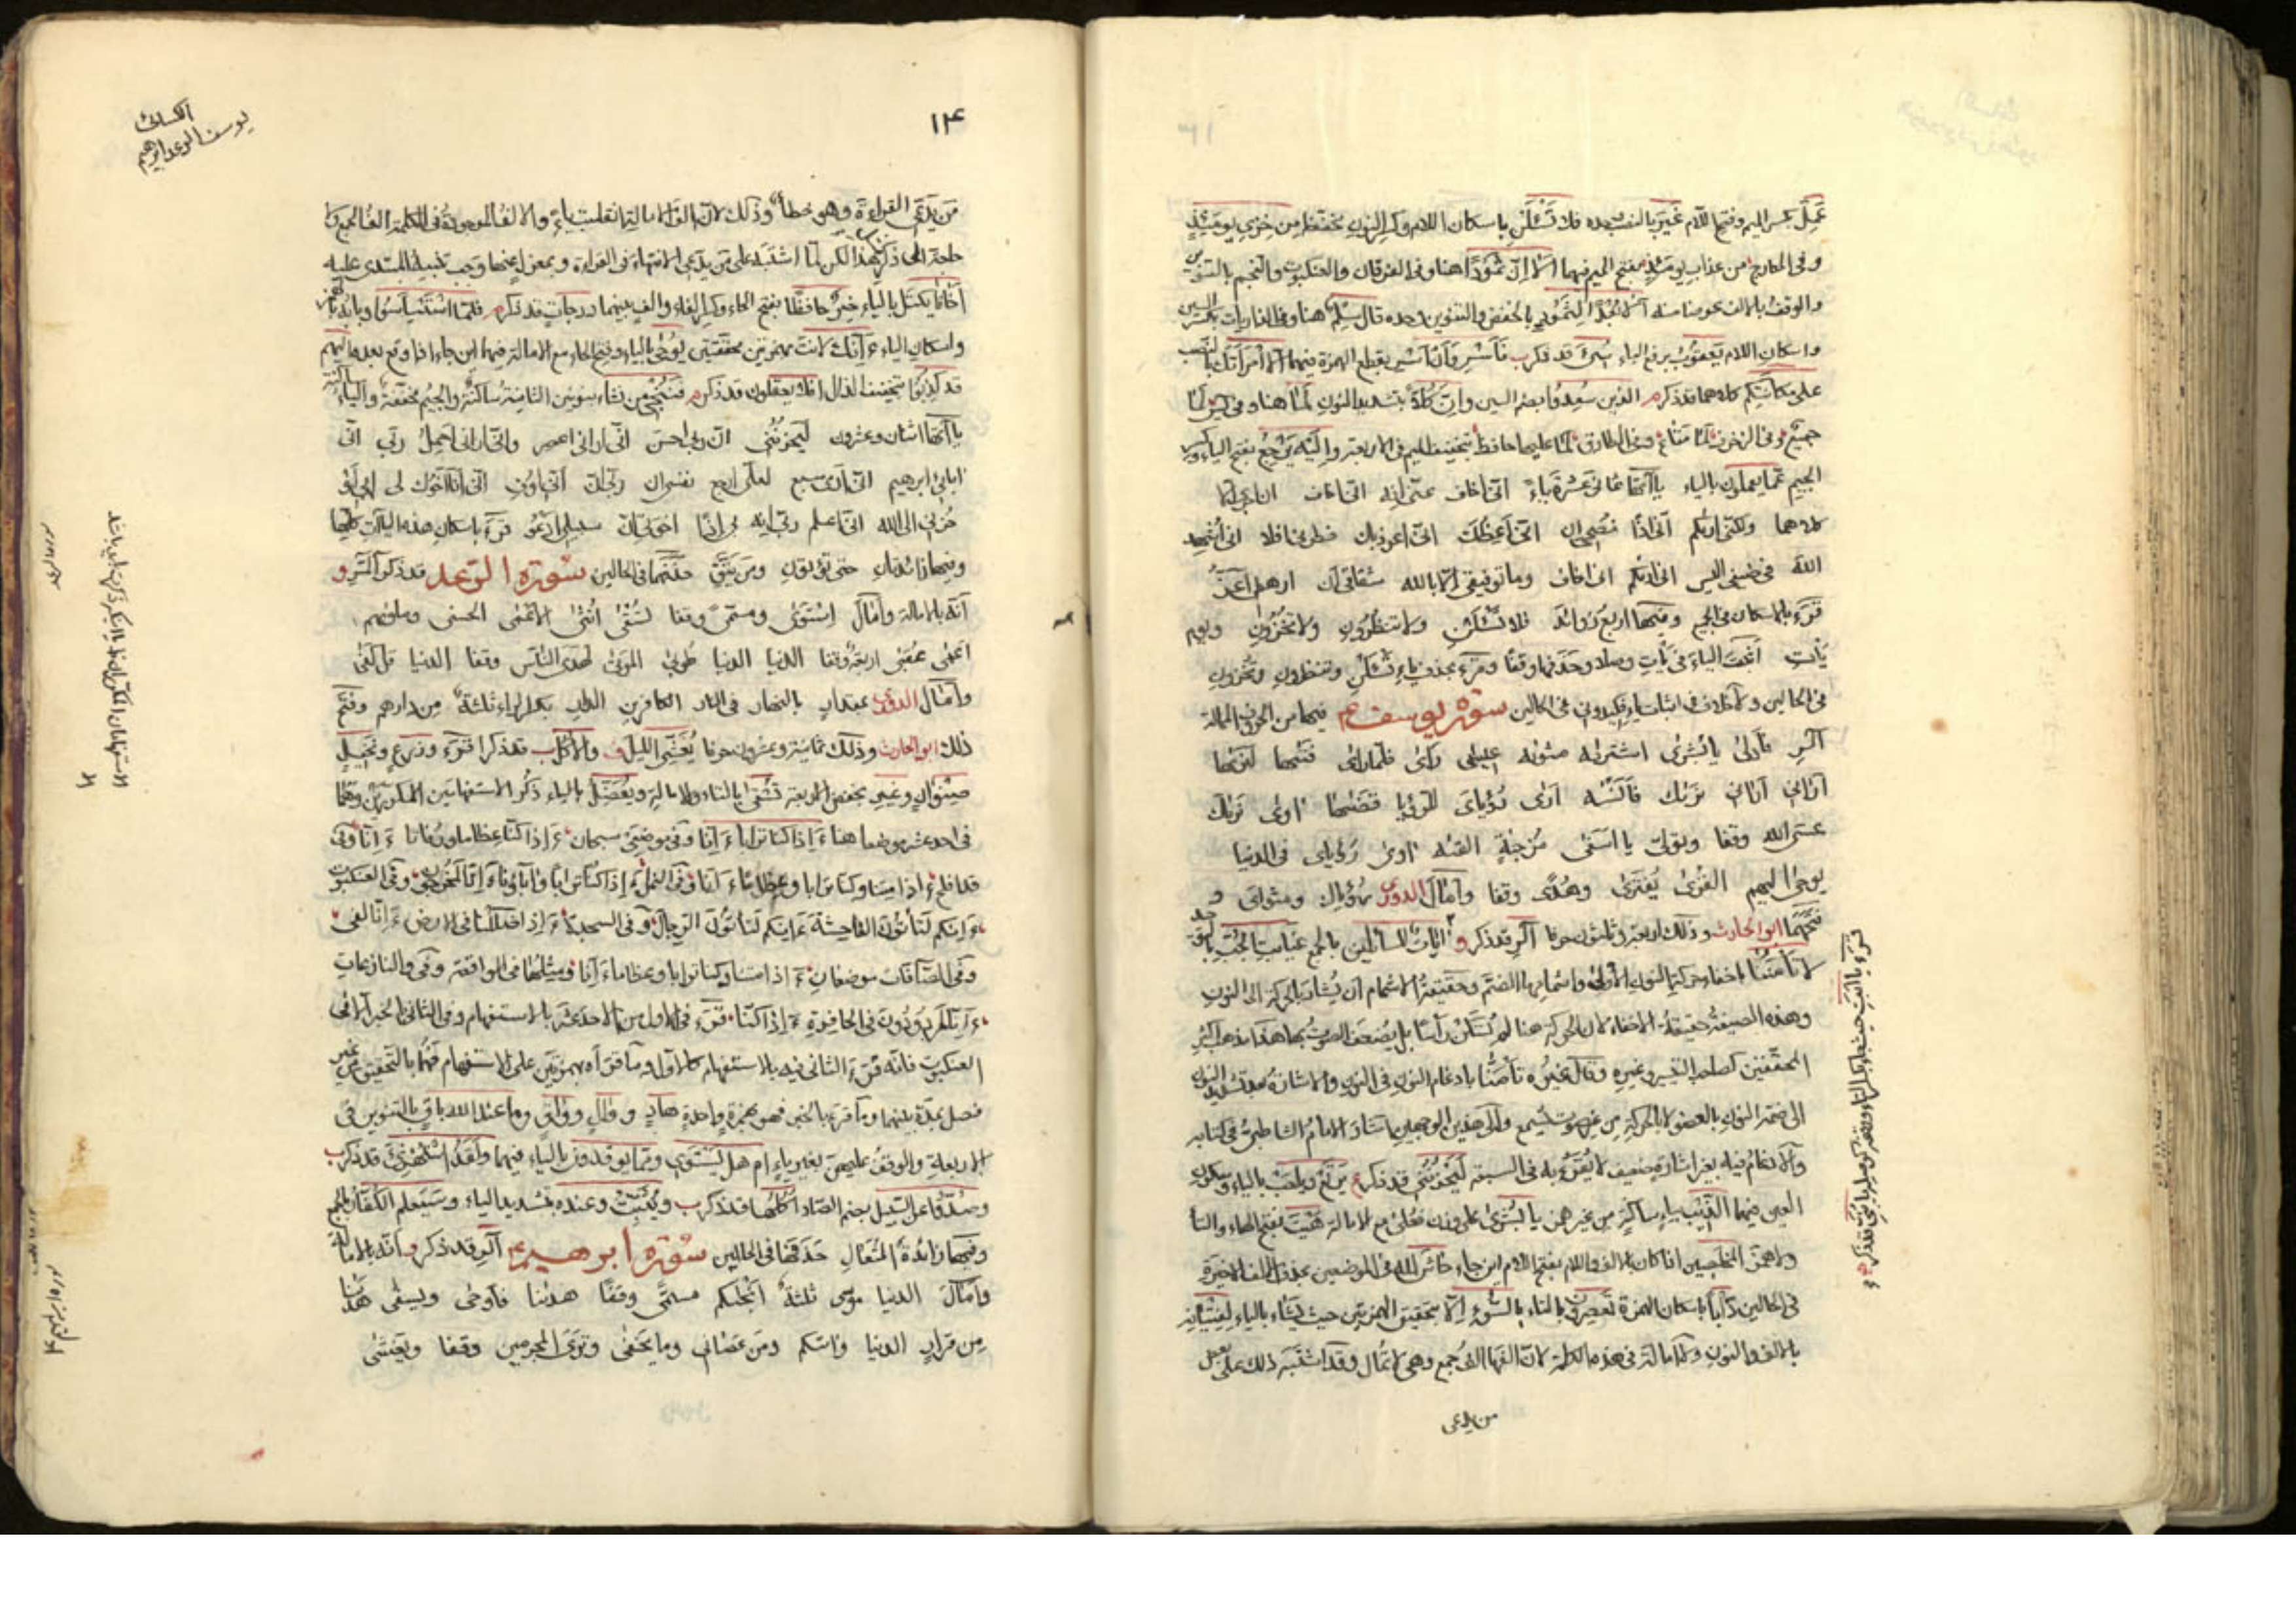 عَمِلَ بكسر الميم وفتح اللام غَيْرَ بالنصب بعده فلا تَسْئَلْنِ باسكان اللام وكسر النون مخففة من خِزْيِ يومَئِذٍ
وفى المعارج من عذابِ يومَئِذٍ بفتح الميم فيهما الا اِنّ ثَمُودًا هنا وفى الفرقان والعنكبوت والنجم بالتنوين
والوقف بالالف عوضا منه الا بُعْدًا لِثَمُودٍ بالخفض والتنوين وحده قال سِلْمٌ هنا وفى الذاريات بكسر السين
واسكان اللام يعقوبُ برفع الباء سىء قد ذكر فاَسْرِ واَنْ اَسْرِ بقطع الهمزة فيهما الا امراَتَكَ بالنصب
على مكانتكم كلاهما قد ذكر الذين سُعِدُوا بضم السين وانّ كلًا بتشديد النون لَمَا هنا وفى يس لَمَا
جميع وفى الزخرف لَمَا متاع وفى الطارق لَمَا عليها حافظ بتخفيف الميم فى الاربعة واِليه يَرْجِعُ بفتح الياء وكسر
الجيم عمّا يعملون بالياء ياآتها ثمانى عشرة ياءً انّى اخاف عنّى انه انّى اخاف ان اجرى الا
كلاهما ولكنّى اريكم انّى اذًا نصحى ان انّى اعظك انّى اعوذ بك فطرنى افلا انى اُشهد
الله فى ضيفى اليس انى اريكم انى اخاف وما توفيقى الا بالله شقاقى ان ارهطى اعزّ
قَرَءَ بالاسكان فى الجميع وفيها اربع زوائد فلا تسئلن ولا تنظرون ولا تخزون ويوم
يأت اثبت الياء فى يأت وصلا وحذفها وقفًا وقرء بحذف ياء تسئلن وتنظرون وتخزون
فى الحالين ولا خلاف فى اثبات ياء فكيدونى فى الحالين سورة يوسف عم فيها من الحروف الممالة
الٓر فادلى يا بشرى اشتريه مثويه عيسى رأى فلما رأى فتيها لنريها
اَرانى اَرانى نريك فاَنسيه ارى رؤياى للرؤيا قضيها اوى نريك
عسى الله وقفا وتولى يا اسفى مزجية القيه اوى رؤياى فى الدنيا
يوحى اليهم القرى يفترى وهدى وقفا واَمال الدورى رؤياك ومثواى و
فتحهما ابو الحارث وذلك اربعة وثلثون حرفا الٓر قد ذكر ايات للسائلين بالجمع غيابت الجب بالتوحيد
لا تأمنّا باخفاء حركة النون الاولى واشمامها الضمّ وحقيقة الاشمام ان يُشار بالحركة الى النون
وهذه الصيغة حقيقة الاخفاء لان الحركة هنا لم تسكّن رأسا بل يضعف الصوت بها هذا مذهب اكثر
المحققين كصاحب التيسير وغيره وقال غيره تأمنّا بادغام النون فى النون والاشارة بعد تشديد النون
الى ضمة النون بالعضو لا بالحركة من غير صوت يُسمع والى هذين الوجهين اشار الامام الشاطبىّ فى كتابه
والادغام فيه بغير اشارة ضعيف لا يُقرَءُ به فى السبعة لَيَحزُنُنى قد ذكر يَرْتَعْ ويلعب بالياء وسكون
العين فيهما الذيب بياء ساكنة من غير همز يا بُشرى على وزن فُعلى مع الامالة هَيْتَ بفتح الهاء والتا
ولا همز المخلصين اذا كان بالالف واللام بفتح اللام اين جاء حاش لله فى الموضعين بحذف الالف الاخيرة
فى الحالين دأبًا باسكان الهمزة تعصرون بالتاء بالسوء الا بتحقيق الهمزتين حيث يشاء بالياء لِفِتْيَانِهِ
بالالف والنون ولا امالة فى هذه الكلمة لانّ الفها الف جمع وهى لا تُمال وقد اشتبه ذلك على بعض
من يدعى
الكسائى
يوسف الرعد ابراهيم
١٤
مَن يدّعى القراءة وهو خطأ وذلك لانّ الف الامالة انقلبت ياءً والالف الموجودة فى الكلمة الف الجمع ولا
حاجة الى ذكر هذا لكن لمّا اشتبه على من يدّعى الانتهاء فى القراءة وبمعزل عنها وجب تنبيه المبتدى عليه
اَخانا يكتل بالياء خيرٌ حافظًا بفتح الحاء وكسر الفاء والف بينهما درجاتٍ قد ذكر فلمّا استيئسوا وبابه بهمز
واسكان الياء ءَاِنّك لانت بهمزتين محققتين يُوحى بالياء وفتح الحاء مع الامالة فيهما اين جاء اذا وقع بعدها اليهم
قد كُذِبُوا بتخفيف الذال افلا يعقلون قد ذكر فنُنْجى من نشاء بنونين الثانية ساكنة والجيم مخففة والياء ساكنة
ياآتها اثنان وعشرون ليحزننى انّ ربى احسن انّى ارانى اعصر وانّى ارانى احمل ربى انّى
ابائى ابرهيم انّى ارى سبع لعلّى ارجع نفسى ان ربى ان انّى اوف انّى انا اخوك لى ابى اَو
حُزنى الى الله انّى اعلم ربى انه بى اذا اخوتى ان سبيلى ادعو قرء باسكان هذه الياآت كلها
وفيها زائدتان حتى تؤتون ومن يتق حذفهما فى الحالين سورة الرعد قد ذكر الٓمر و
انه بالامالة واَمال استوى ومسمّى وقفا تسقى اُنثى الاعمى الحسنى ومأويهم
اعمى عقبى اربعة وقفا الدنيا الدنيا طوبى الموتى لهدى الناس وقفا الدنيا فى الكفى
واَمال الدورى بمقدار بالنهار فى النار الكافرين الدار بعد الراء ثلثة من دارهم وفتح
ذلك ابو الحارث وذلك ثمانية وعشرون حرفا يُغَشّى الليل والاُكُل قد ذكرا قرء وزرع ونخيل
صنوانٍ وغيرِ بخفض الاربعة تُسقى بالتاء والامالة ويُفضّل بالياء ذكر الاستفهامين المكررين وهما
فى احد عشر موضعا هنا ءَاِذا كنا ترابا ءَاِنّا وفى موضعى سبحان ءَاِذا كنا عظاما ورفاتا ءَاِنّا وفى
قد افلح ءَاِذا متنا وكنا ترابا وعظاما ءَاِنّا وفى النمل ءَاِذا كنا ترابا واباؤنا ءَاِنّا لمخرجون وفى العنكبوت
ءَاِنكم لتأتون الفاحشة ءَاِينّكم لتأتون الرجال وفى السجدة ءَاِذا ضللنا فى الارض ءَاِنّا لفى
وفى الصّافّات موضعان ءَاِذا متنا وكنا ترابا وعظاما ءَاِنّا ومثلها فى الواقعة وفى والنازعات
ءَاِنّا لمردودون فى الحافرة ءَاِذا كنّا قرء فى الاول من الاحد عشر بالاستفهام وفى الثانى الخبر الا فى
العنكبوت فانه قرء الثانى فيه بالاستفهام كالاول وما قرأه بهمزتين على الاستفهام فهما بالتحقيق من غير
فصل بمدة بينهما وما قرء بالخبر فهو بهمزة واحدة هادٍ ووالٍ وواقٍ وما عند الله باقٍ بالتنوين فى
الاربعة والوقف عليهنّ بغير ياءٍ ام هل يستوى وممّا يوقدون بالياء فيهما ولقد استهزئ قد ذكر
وصُدّوا عن السبيل بضم الصاد اُكُلُها قد ذكر ويُثبّت وعنده بتشديد الباء وسيعلم الكفّار بالجمع
وفيها زائدة المتعال حذفها فى الحالين سورة ابرهيم عم الٓر قد ذكر وانه بالامالة
واَمال الدنيا موسى ثلثة انجيكم مسمّى وقفًا هدينا فاَوحى ويسقى هدينا
مِن قرارٍ الدنيا واتيكم ومن عصانى وما يخفى وترى المجرمين وقفا وتغشى
سورة الرعد
سورة ابراهيم ٤